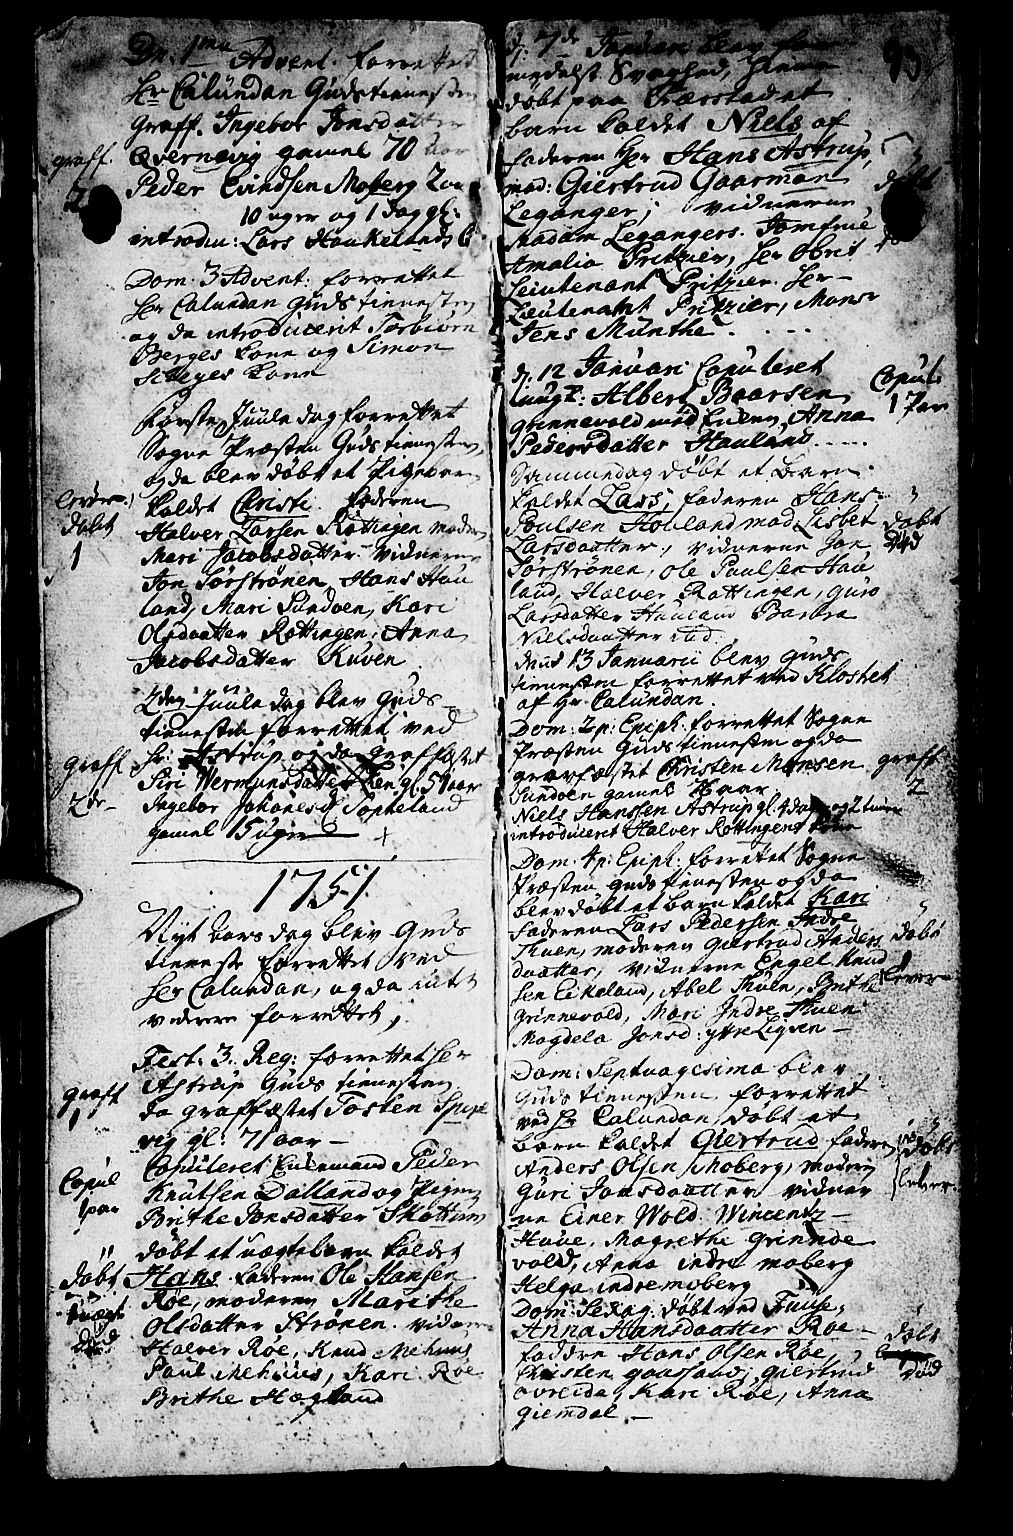 Dn. 1mu Advent. forrettet
Hr Calundan Gudstienesten
Graff. Ingebor Jonsdatter
graff. Qvernevig gamel 70 aar
2 Peder Eivindsen Moberg 2
10 uger og 1 Dag gl:
introdu: Lars Haukelands
Dom. 3 Advent: forrettet
Hr Calundan Guds tienesten
og da introducerit Torbiørn
Berges kone og Simon
kone
første Juule dag forrettet
Sogne Præsten Guds tienesten,
og da blev døbt et Pigebarn
kaldet Christi. faderen
døbt Halvor Larsen Røttingen moder
1 Mari Jacobsdatter. vidnerne
Jon Sørstrønen, Hans Hau
land, Mari Sundøen, Kari
Olsdaatter Røttingen, Anna
Jacobsdatter Kuven.
2den Juule dag blev Guds
tienesten forrettet ved
graff Hr: Astrup og da graffæstet
Siri Wermunsdatter gl. 59 aar
2de Ingebor Johanes Sopteland
gamel 15 uger
1751.
Nyt aars dag blev Guds
tieneste forrettet ved
Hr Calundan, og da intet
videre forrettet,
Fest: 3. Reg: forrettet Hr
Astrup Guds tienesten
graft da graffæstet Tosten
1 vig gl: 71 aar
Copuleret Eulemand Peder
Copul Knutsen Dalland og Pigen
1 par Brithe Jonsdatter Skottum
døbt et uægte barn kaldet
døbt Hans. faderen Ole Hansen
uægte Røe, moderen Marithe
død Olsdatter Strønen. vidner
Halvor Røe, Knud Mehuus
Poul Mehuus, Kari Røe
Brithe Hegland
d: 7de Januari blev
93
medelst Svaghed, hiemme
døbt paa Færstadet
barn kaldet Niels af
faderen Hr Hans Astrup,
mod: Giertrud Gaarman døbt
Leganger; vidnerne
Madam Legangers. Jomfrue
Amalia Pritzier, Hr Obrit
Leiutenant Pritzier. Hr
Lieutenant Pritzier, Monsr
Jens Munthe.
d: 12 Januari Copuleret Copul
Albert Baarsen 1 Par
grinnevold med Enken Anna
Pedersdatter Hauland
Sammedag døbt et Barn
kaldet Lars, faderen Hans
Poulsen Hovland mod Lisbet døbt
Larsdaatter, vidnerne Jon død
Sørstrønen, Ole Poulsen Hau
land, Halvor Røttingen, Guro
Larsdatter Hauland Barbra
Nielsdaatter ibid.
13 Januarii blev Guds
tienesten forrettet ved Klostet
af Hr Calundan.
Dom: 2 p: Epiph: forrettet Sogne
Præsten Guds tienesten og da
gravfæstet Christen Monsen graff
Sundøen gamel aar 2
Niels Hanssen Astrup gl. 4 dage og 2 timer
introduceret Halvor Røttingens kone
Dom: 4 p: Epiph: forrettet Sogne
Præsten Guds tienesten og da
blev døbt et barn kaldet Kari
faderen Lars Pedersen Indre døbt
Thuen, moderen Giertrud Anders
daatter, vidnerne Engel Knud
sen Eikeland, Abel Thuen, Brithe lever
Grinnevold, Mari Indre Thuen
Magdela Jonsd: yttre
Dom: Septuagesima blev
Guds tienesten forrettet
ved Hr Calundan, døbt et
barn kaldet Giertrud faderen døbt
Anders Olsen Moberg, moderen
Guri Jonsdaatter vidner lever
ne Einer Wold. Wincentz
Haue, Magrethe Grinde
vold, Anna indre moberg
Helga indre moberg
Dom: Sexag: døbt ved Fuuse,
Anna Hansdaatter Røe døbt
faddre Hans Olsen Røe, død
Christen gaassand, giertrud
øvreide, Kari Røe, Anna
giemdal.